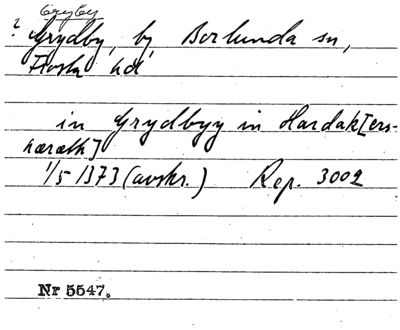 Gryby
? Grydby, by, Borlunda sn,
Frosta hd
in Grydbyy in Hardak[ers-
hæræth]
1/5 1373 (avskr.) Rep. 3002
Nr 5547.